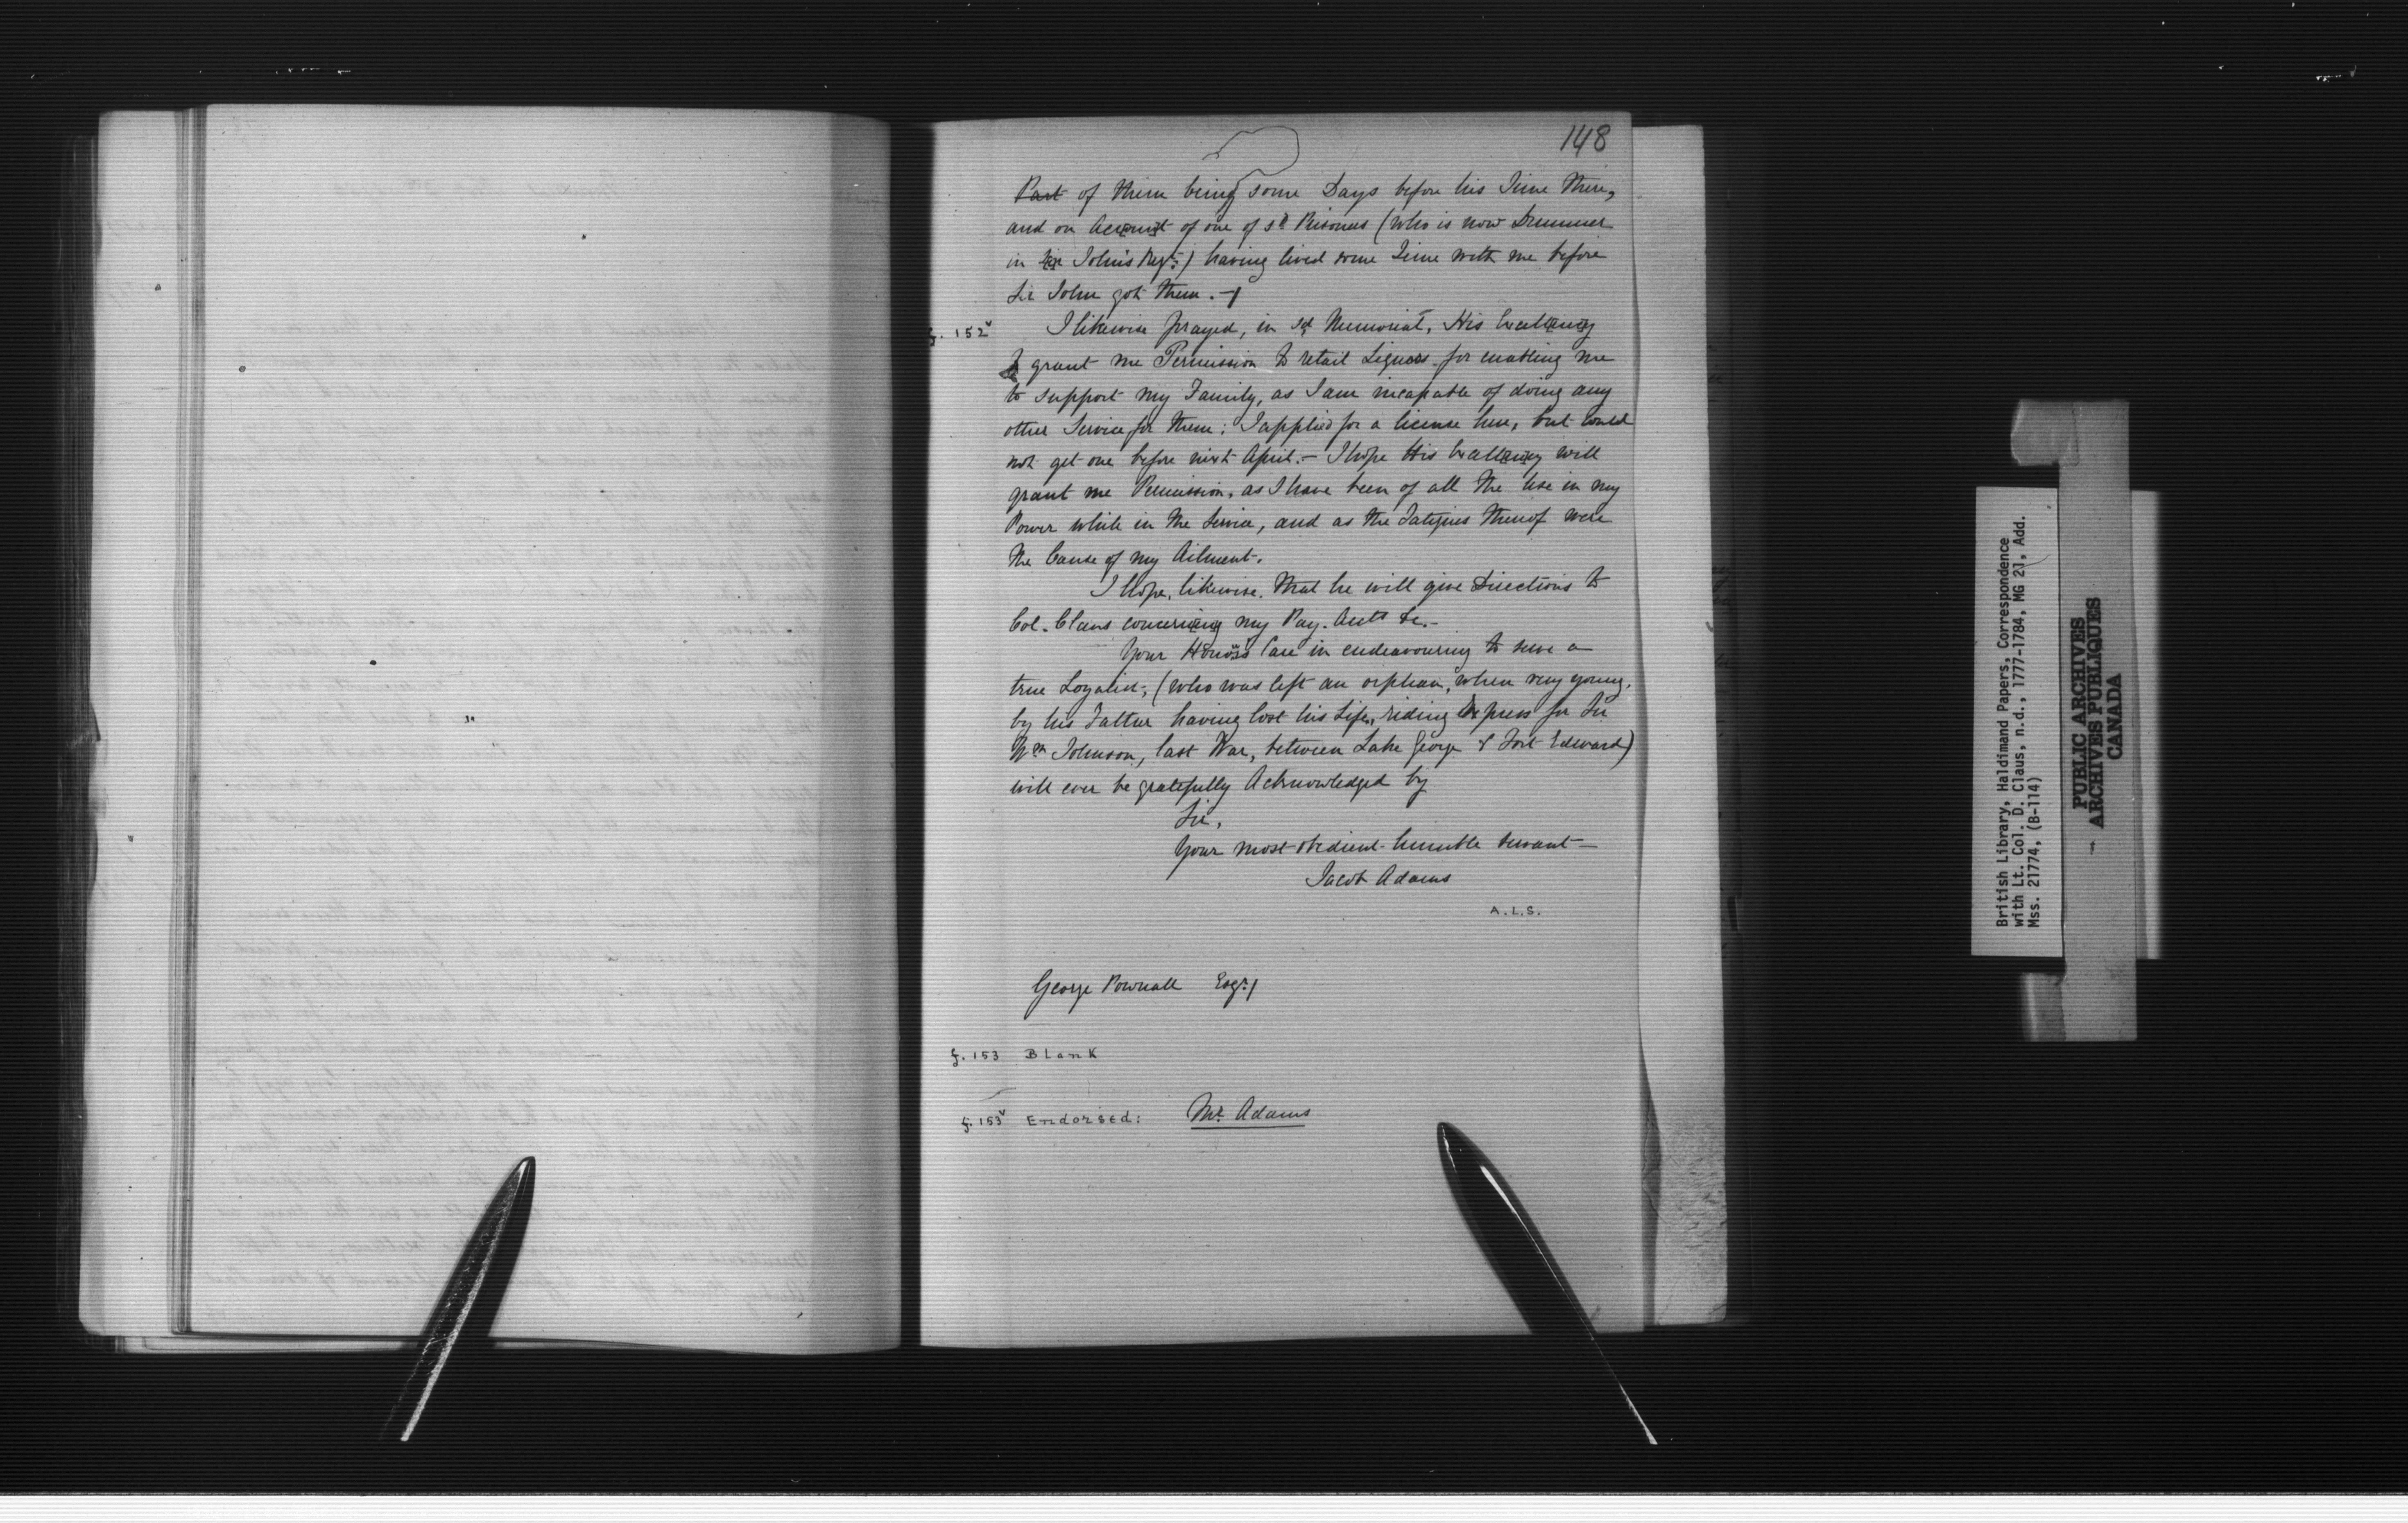 148
Part of them being some Days before his Time there,
and on Account of one of sd Prisoners (who is now Drummer
in Sir John's Regt:) having lived some Time with me before
Sir John got them. -/
f. 152v I likewise prayed, in sd Memorial, His Excellency
to grant me Permission to retail Liquors for enabling me
to support my Family, as I am incapable of doing any
other Service for them; I applied for a license here, but could
not get one before next April. - I hope His Excellency will
grant me Permission, as I have been of all the Use in my
Power while in the Service, and as the Fatigues thereof were
the Cause of my Ailment.
I hope, likewise, that he will give Directions to
Col. Claus concerning my Pay. Accts &c. -
Your Honor's Care in endeavouring to serve a
true Loyalist; (who was left an orphan, when very young,
by his Father having lost his Life, riding Express for Sir
Wm Johnson, last War, between Lake George & Fort Edward)
will ever be gratefully Acknowledged by
Sir,
Your most obedient humble servant -
Jacob Adams
A.L.S.
George Pownall Esqr/
f. 153 Blank
f. 153v Endorsed: Mr Adams
British Library, Haldimand Papers, Correspondence
with Lt. Col. D. Claus, n.d., 1777-1784, MG 21, Add.
Mss. 21774, (B-114)
PUBLIC ARCHIVES
ARCHIVES PUBLIQUES
CANADA